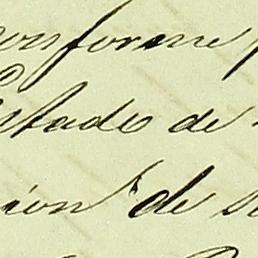 conforme
Estado de
ion de